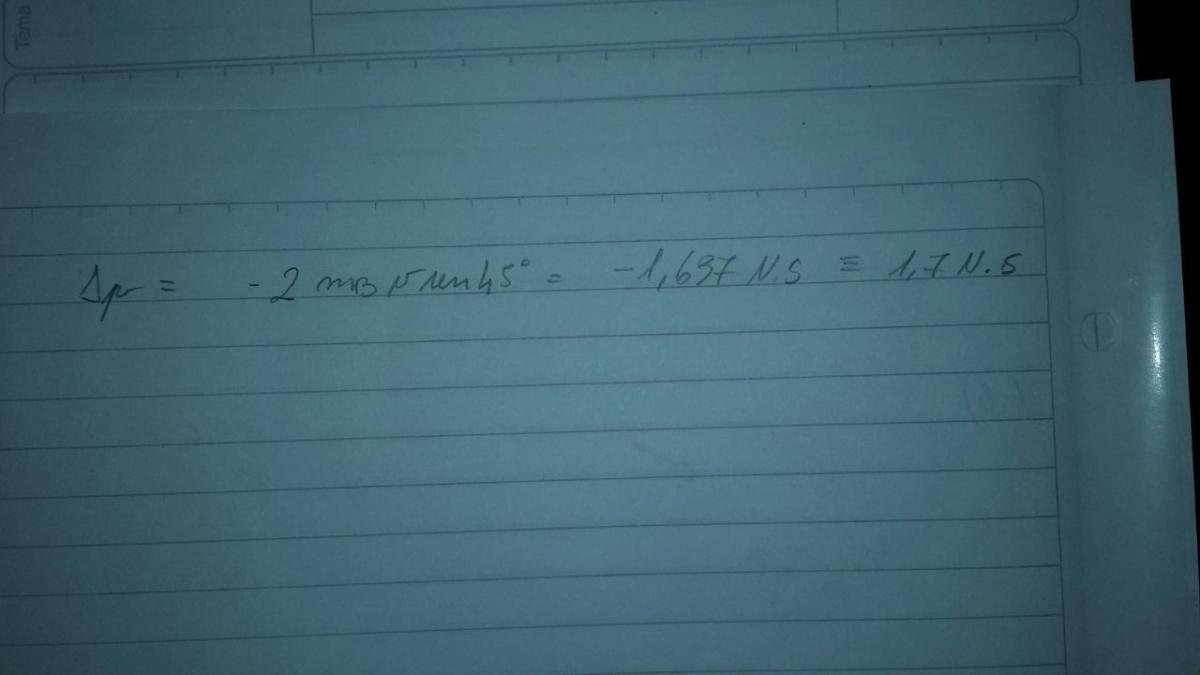 Tema
Δp = - 2 mB v sen 45° = -1,697 N.S ≡ 1,7 N.S